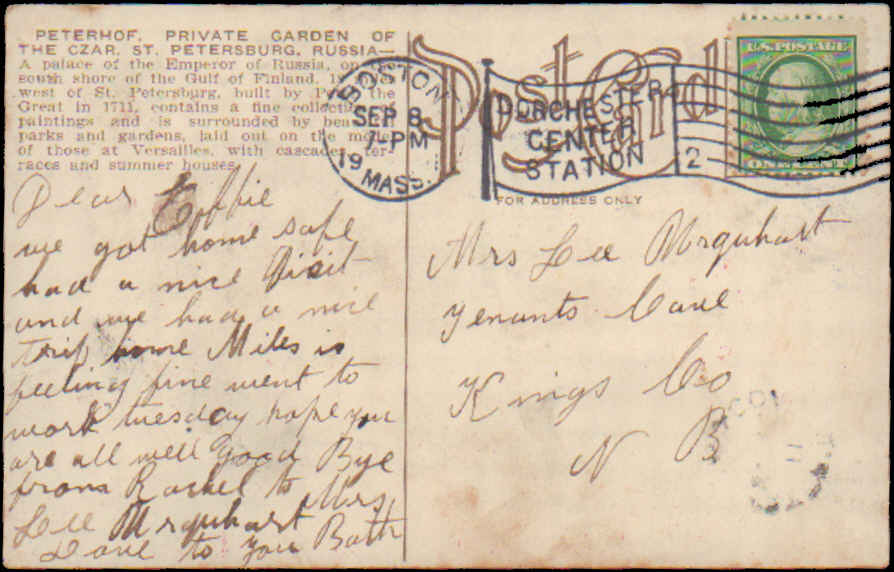 PETERHOF, PRIVATE GARDEN OF
THE CZAR, ST. PETERSBURG, RUSSIA—
A palace of the Emperor of Russia, on
south shore of the Gulf of Finland,
west of St. Petersburg, built by
Great in 1711, contains a fine
paintings and is surrounded by
parks and gardens, laid out on the
of those at Versailles, with cascades, ter-
races and summer houses.
Post Card
BOSTON
SEP 8
7-PM
19
MASS.
DORCHESTER
CENTER
STATION
2
U.S. POSTAGE
ONE CENT
FOR ADDRESS ONLY
Dear Effie
we got home safe
had a nice Visit
and we had a nice
trip home Miles is
feeling fine went to
work tuesday hope you
are all well good Bye
from Rachel to Mrs
Lee Mrquhart
Love to you Both
Mrs Lee Mrquhart
Tenants Cove
Kings Co
N B
11